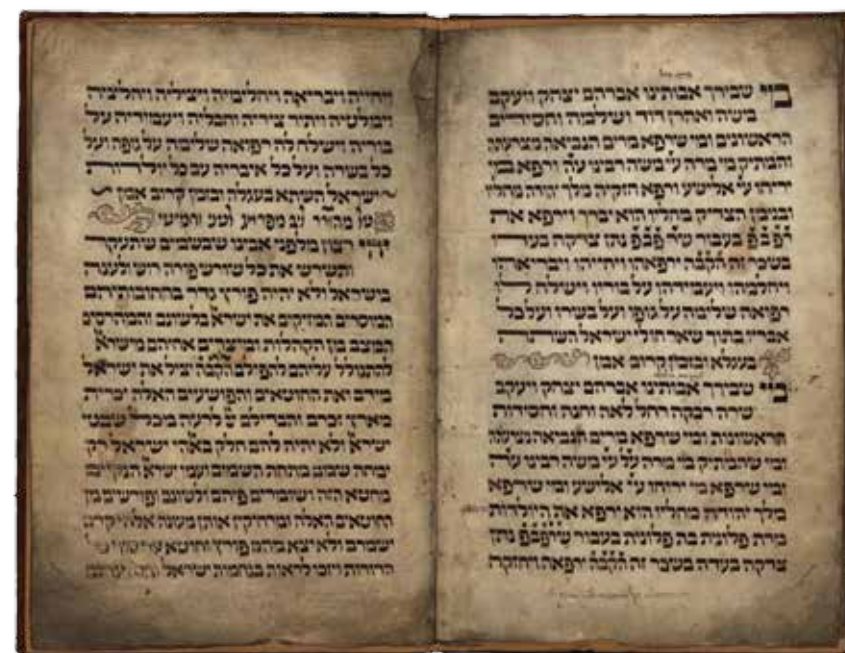 מי שבירך אבותינו אברהם יצחק ויעקב
משה ואהרן דוד ושלמה וחסידים
הראשונים ומי שריפא מרים הנביאה מצרעתה
והמתיק מי מרה ע״י משה רבינו ע״ה ורפא מי
יריחו ע״י אלישע ורפא חזקיה מלך יהודה מחליו
ובנימן הצדיק מחליו הוא יברך וירפא את
פ׳ב׳פ׳ בעבור ש׳ר׳ פ׳ב׳פ׳ נתן צדקה בעדו
בשכר זה הקבה ירפאהו ויחייהו ויבריאהו
ויחלמהו ויעמידהו על בוריו וישלח לו
רפואה שלימה על גופו ועל בשרו ועל כל
אבריו בתוך שאר חולי ישראל השתא
בעגלא ובזמן קרוב אמן
מי שבירך אבותינו אברהם יצחק ויעקב
שרה רבקה רחל לאה וחנה וחסידות
הראשונות ומי שריפא מרים הנביאה מצרעתה
ומי שהמתיק מי מרה על ע״י משה רבינו ע״ה
ומי שריפא מי יריחו ע״י אלישע ומי שריפא
מלך יהודה מחליו הוא ירפא את היולדות
מרת פלונית בת פלונית בעבור ש׳ר׳פ׳ב׳פ׳ נתן
צדקה בעדה בשכר זה הקבה ירפאה ויחזקה
ויחייה ויבריאה ויחלימיה ויציליה ויחליציה
וימלטיה ויתיר ציריה וחבליה ויעמידיה על
בוריה וישלח לה רפואה שלימה על גופה ועל
כל בשרה ועל כל איבריה עם כל יולדות
ישראל השתא בעגלה ובזמן קרוב אמן
יהי רצון מלפני אבינו שבשמים שתעקר
ותשרש את כל שורש פורה רוש ולענה
בישראל ולא יהיה פורץ גדר בחומותיהם
המוסרים המזיקים את ישרא׳ בלשונם והמהרסים
המצב מן הקהלות ומייצרים אחיהם מישרא׳
להתגולל עליהם להפילם הקבה יציל את ישראל
מידם ואת החוטאים והפושעים האלה יכרית
מארץ זכרם והבדילם לרעה מכל שבטי
ישרא׳ ולא יהיה להם חלק באהי ישראל רק
ימחה שמם מתחת השמים ועמי ישרא׳ הנקיים
מחטא הזה ושומרים פיהם ולשונם ופורשים מן
החוטאים האלה ומרחיקין אותן מעונה אלהי קדם
ישמרם ולא יצא מהם פורץ וחוטא
הדורות ויזכו לראות בנחמות ישראל